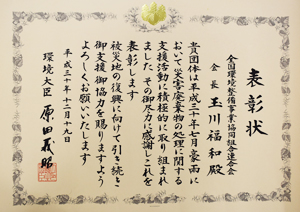 表彰状
全国環境整備事業協同組合連合会
会長 玉川福和殿
貴団体は平成三十年七月豪雨に
おいて災害廃棄物の処理に関する
支援活動に積極的に取り組まれ
ました その御尽力に感謝しこれを
表彰します
被災地の復興に向けて引き続き
御支援御協力を賜りますよう
よろしくお願いいたします
平成三十年十二月十九日
環境大臣 原田義昭